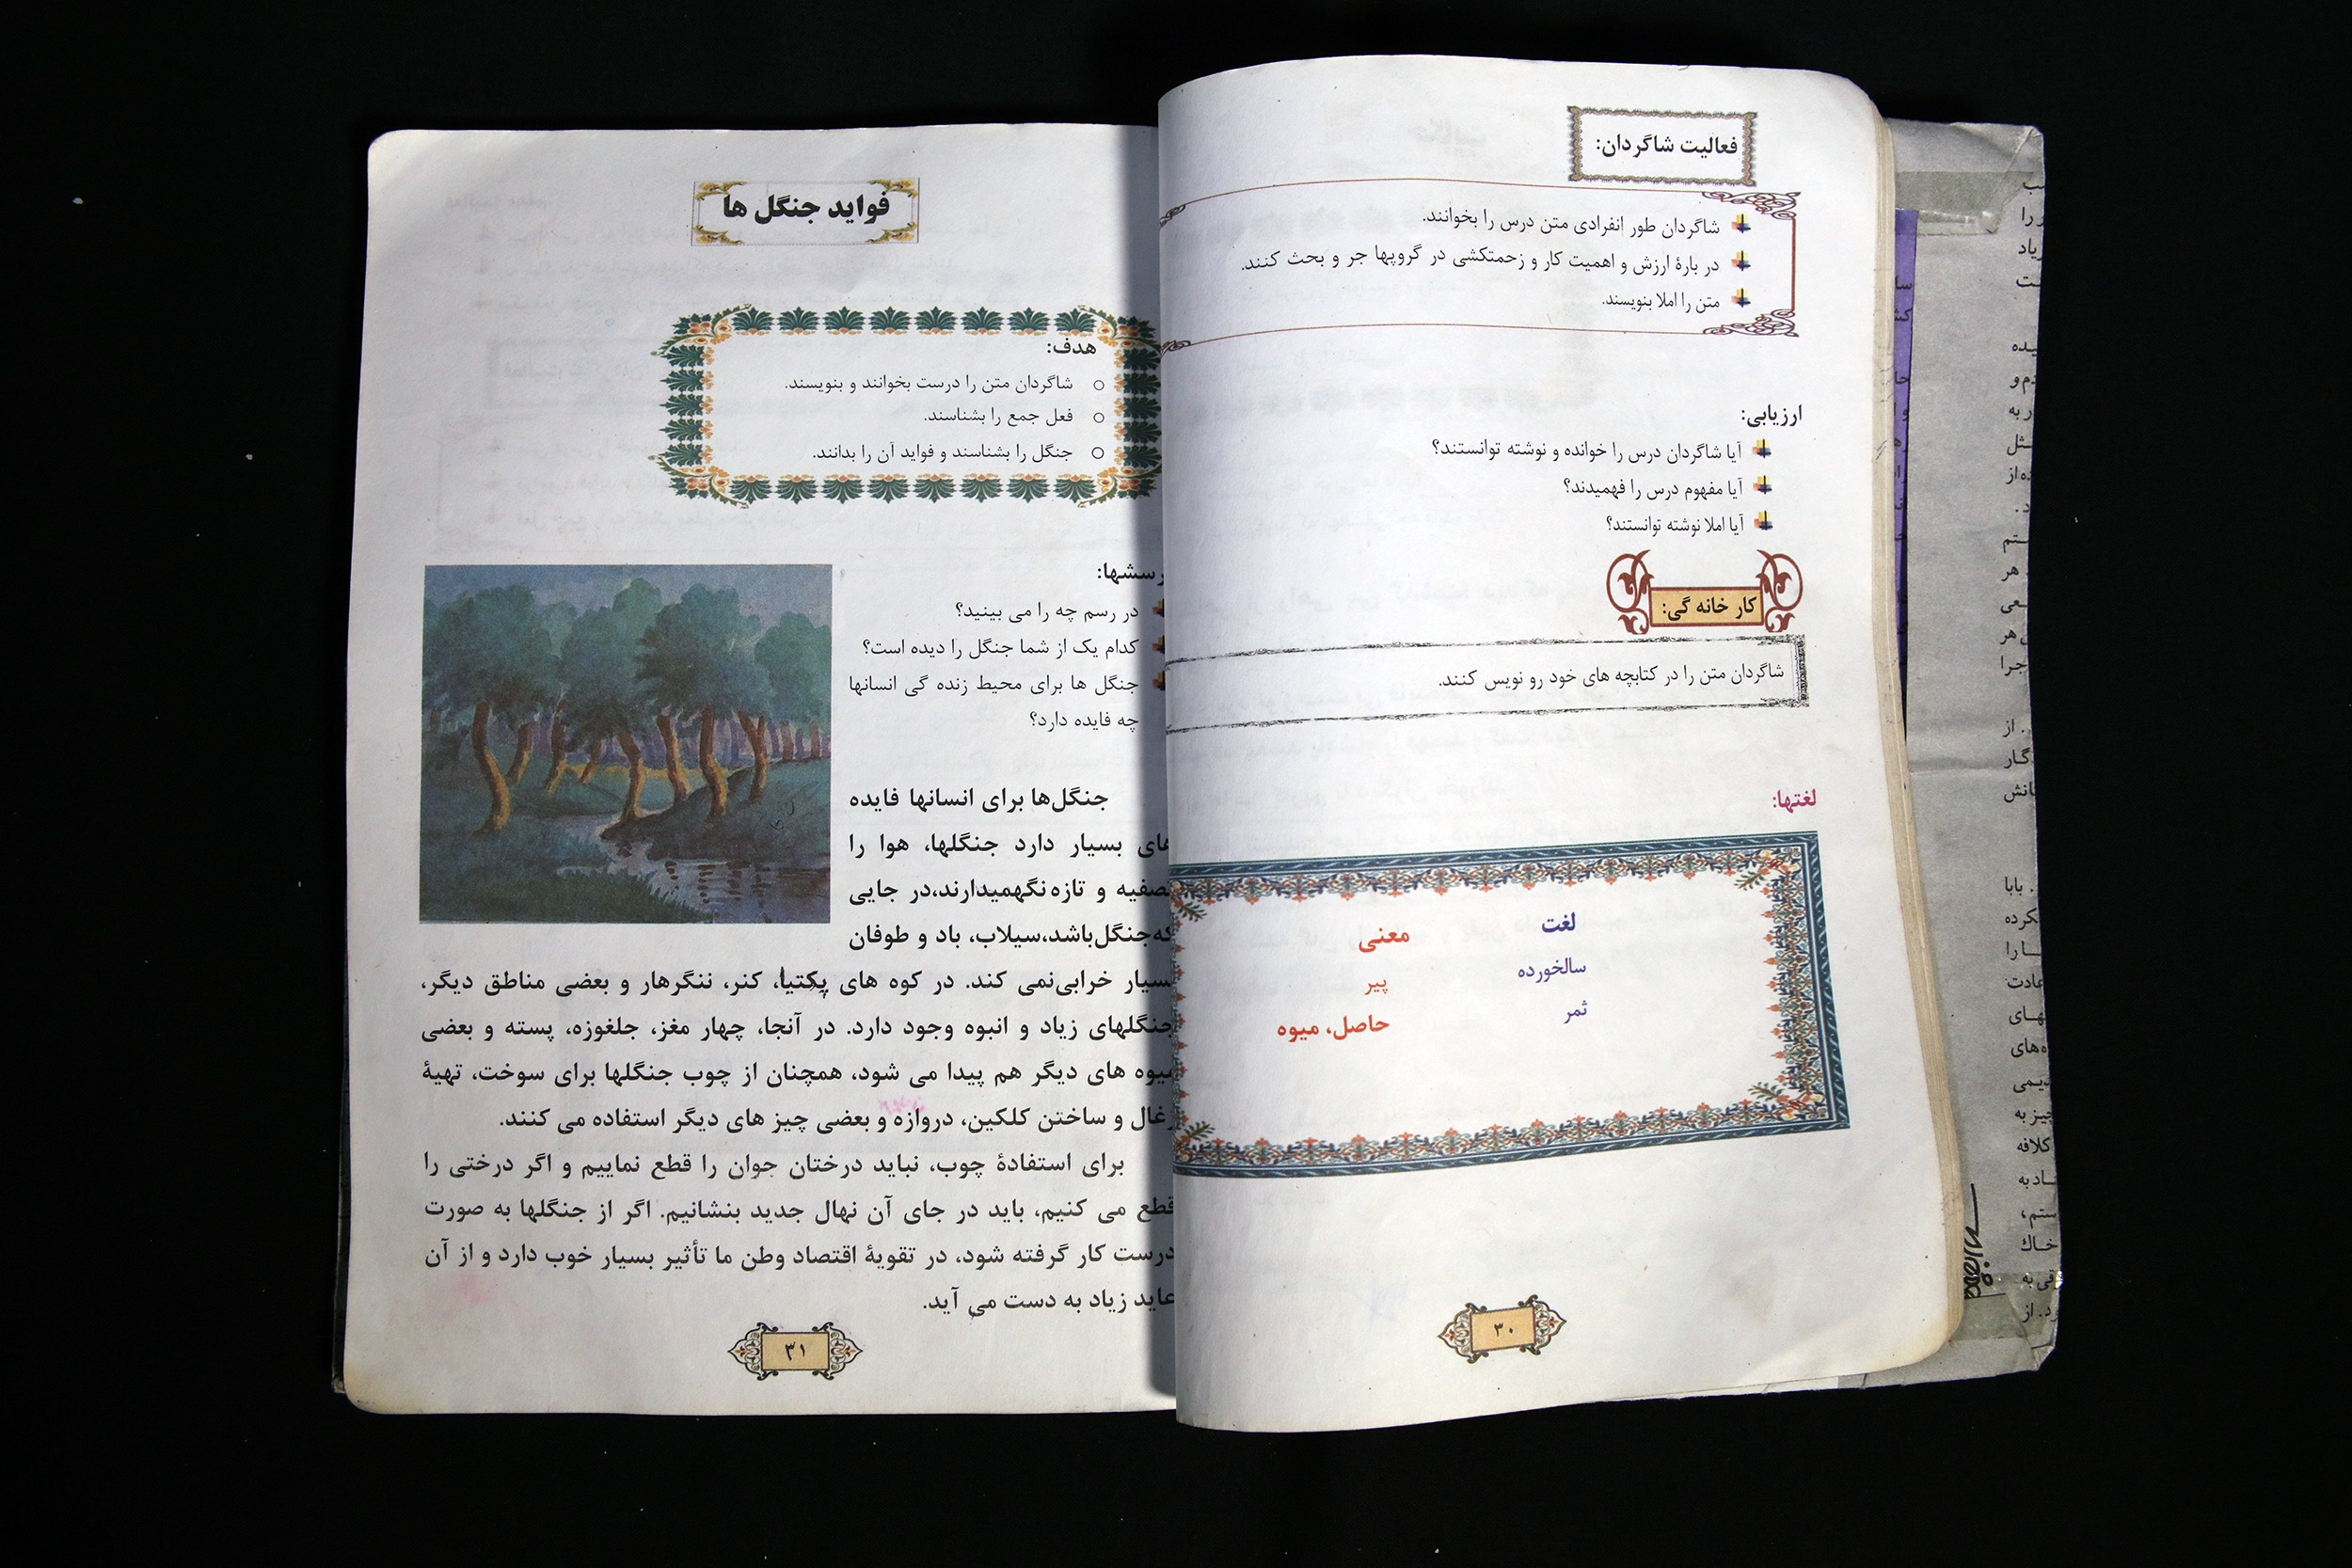 فعالیت شاگردان:
شاگردان طور انفرادی متن درس را بخوانند.
در بارۀ ارزش و اهمیت کار و زحمتکشی در گروپها جر و بحث کنند.
متن را املا بنویسند.
ارزیابی:
آیا شاگردان درس را خوانده و نوشته توانستند؟
آیا مفهوم درس را فهمیدند؟
آیا املا نوشته توانستند؟
کار خانه گی:
شاگردان متن را در کتابچه های خود رو نویس کنند.
لغتها:
لغت معنی
سالخورده پیر
ثمر حاصل، میوه
۳۰
فواید جنگل ها
هدف:
شاگردان متن را درست بخوانند و بنویسند.
فعل جمع را بشناسند.
جنگل را بشناسند و فواید آن را بدانند.
رسشها:
در رسم چه را می بینید؟
کدام یک از شما جنگل را دیده است؟
جنگل ها برای محیط زنده گی انسانها
چه فایده دارد؟
جنگل‌ها برای انسانها فایده
های بسیار دارد جنگلها، هوا را
تصفیه و تازه نگهمیدارند،در جایی
که‌جنگل‌باشد،سیلاب، باد و طوفان
بسیار خرابی‌نمی کند. در کوه های پکتیا، کنر، ننگرهار و بعضی مناطق دیگر،
جنگلهای زیاد و انبوه وجود دارد. در آنجا، چهار مغز، جلغوزه، پسته و بعضی
میوه های دیگر هم پیدا می شود، همچنان از چوب جنگلها برای سوخت، تهیۀ
زغال و ساختن کلکین، دروازه و بعضی چیز های دیگر استفاده می کنند.
برای استفادۀ چوب، نباید درختان جوان را قطع نماییم و اگر درختی را
قطع می کنیم، باید در جای آن نهال جدید بنشانیم. اگر از جنگلها به صورت
درست کار گرفته شود، در تقویۀ اقتصاد وطن ما تأثیر بسیار خوب دارد و از آن
عاید زیاد به دست می آید.
۳۱